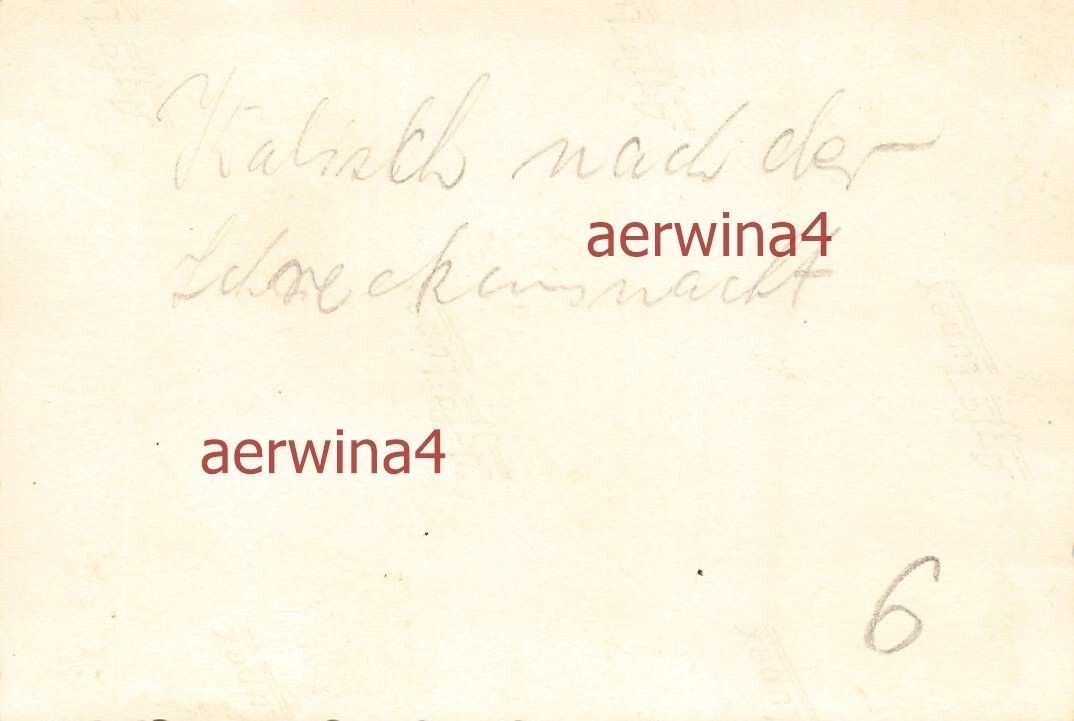 Kalisch nach der
Schreckensnacht
aerwina4
aerwina4
6